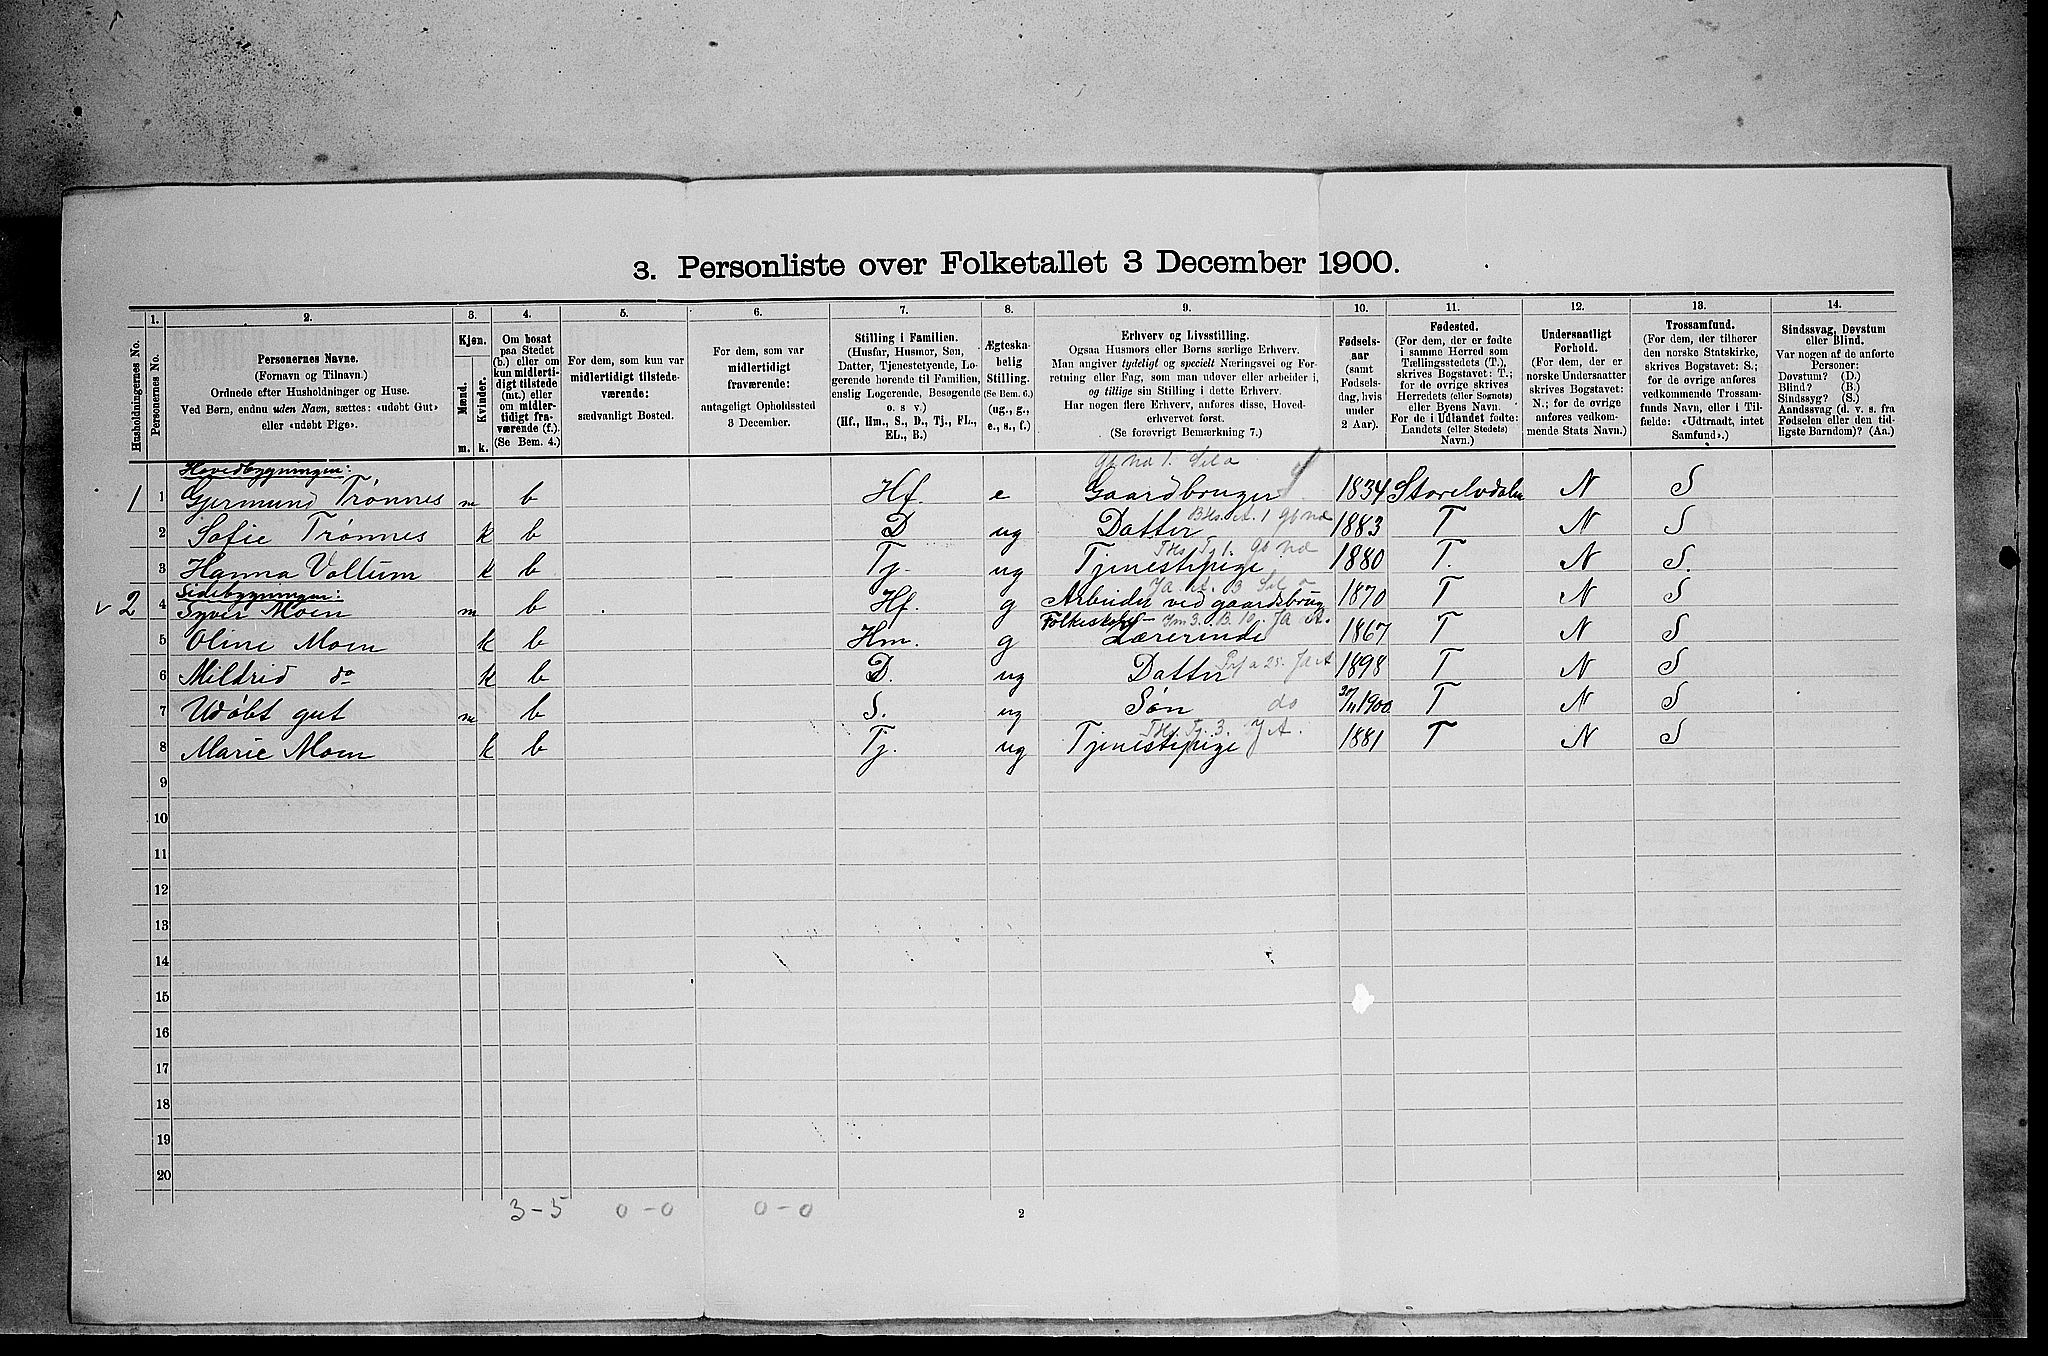 3. Personliste over Folketallet 3 December 1900.
1. 2. 3. 4. 5. 6. 7. 8. 9. 10. 11. 12. 13. 14.
Husholdningernes No.
Personernes No.
Personernes Navne.
(Fornavn og Tilnavn.)
Ordnede efter Husholdninger og Huse.
Ved Børn, endnu uden Navn, sættes: «udøbt Gut»
eller «udøbt Pige».
Kjøn.
Mænd.
Kvinder.
m. k.
Om bosat
paa Stedet
(b.) eller om
kun midlerti-
digt tilstede
(mt.) eller
om midler-
tidigt fra-
værende (f.).
(Se Bem. 4.)
For dem, som kun var
midlertidigt tilstede-
værende:
sædvanligt Bosted.
For dem, som var
midlertidigt
fraværende:
antageligt Opholdssted
3 December.
Stilling i Familien.
(Husfar, Husmor, Søn,
Datter, Tjenestetyende, Lo-
gerende hørende til Familien,
enslig Logerende, Besøgende
o. s v.)
(Hf., Hm., S., D., Tj., FL.,
EL., B.)
Ægteska-
belig
Stilling.
(Se Bem. 6.)
(ug., g.,
e., s., f.)
Erhverv og Livsstilling.
Ogsaa Husmors eller Børns særlige Erhverv.
Man angiver tydeligt og specielt Næringsvei og For-
retning eller Fag, som man udøver eller arbeider i,
og tillige sin Stilling i dette Erhverv.
Har nogen flere Erhverv, anføres disse, Hoved-
erhvervet først.
(Se forøvrigt Bemærkning 7.)
Fødsels-
aar
(samt
Fødsels-
dag, hvis
under
2 Aar).
Fødested.
(For dem, der er fødte
i samme Herred som
Tællingsstedets (T.),
skrives Bogstavet: T.;
for de øvrige skrives
Herredets (eller Sognets)
eller Byens Navn.
For de i Udlandet fødte:
Landets (eller Stedets)
Navn.)
Undersaatligt
Forhold.
(For dem, der er
norske Undersaatter
skrives Bogstavet:
N.; for de øvrige
anføres vedkom-
mende Stats Navn.)
Trossamfund.
(For dem, der tilhører
den norske Statskirke,
skrives Bogstavet: S.;
for de øvrige anføres
vedkommende Trossam-
funds Navn, eller i Til-
fælde: «Udtraadt, intet
Samfund».)
Sindssvag, Døvstum
eller Blind.
Var nogen af de anførte
Personer:
Døvstum? (D.)
Blind? (B.)
Sindssyg? (S.)
Aandssvag (d. v. s. fra
Fødselen eller den tid-
ligste Barndom)? (Aa.)
Hovedbygningen:
1 1 Gjermund Trønnes m b Hf. e Gaardbruger 1834 Storelvdalen N S
2 Sofie Trønnes k b D ug Datter 1883 T N S
3 Hanna Voltum k b Tj. ug Tjenestepige 1880 T. N S.
Sidebygningen:
v 2 4 Syver Moen m b Hf. g Arbeider ved gaardsbrug 1870 T N S
5 Oline Moen k b Hm. g Lærerinde 1867 T N S
6 Mildrid do k b D. ug Datter 1898 T N S
7 Udøbt gut m b S. ug Søn do 30/11 1900 T N S
8 Marie Moen k b Tj. ug Tjenestepige 1881 T N S
9
10
11
12
13
14
15
16
17
18
19
20
3-5 0-0 0-0
2